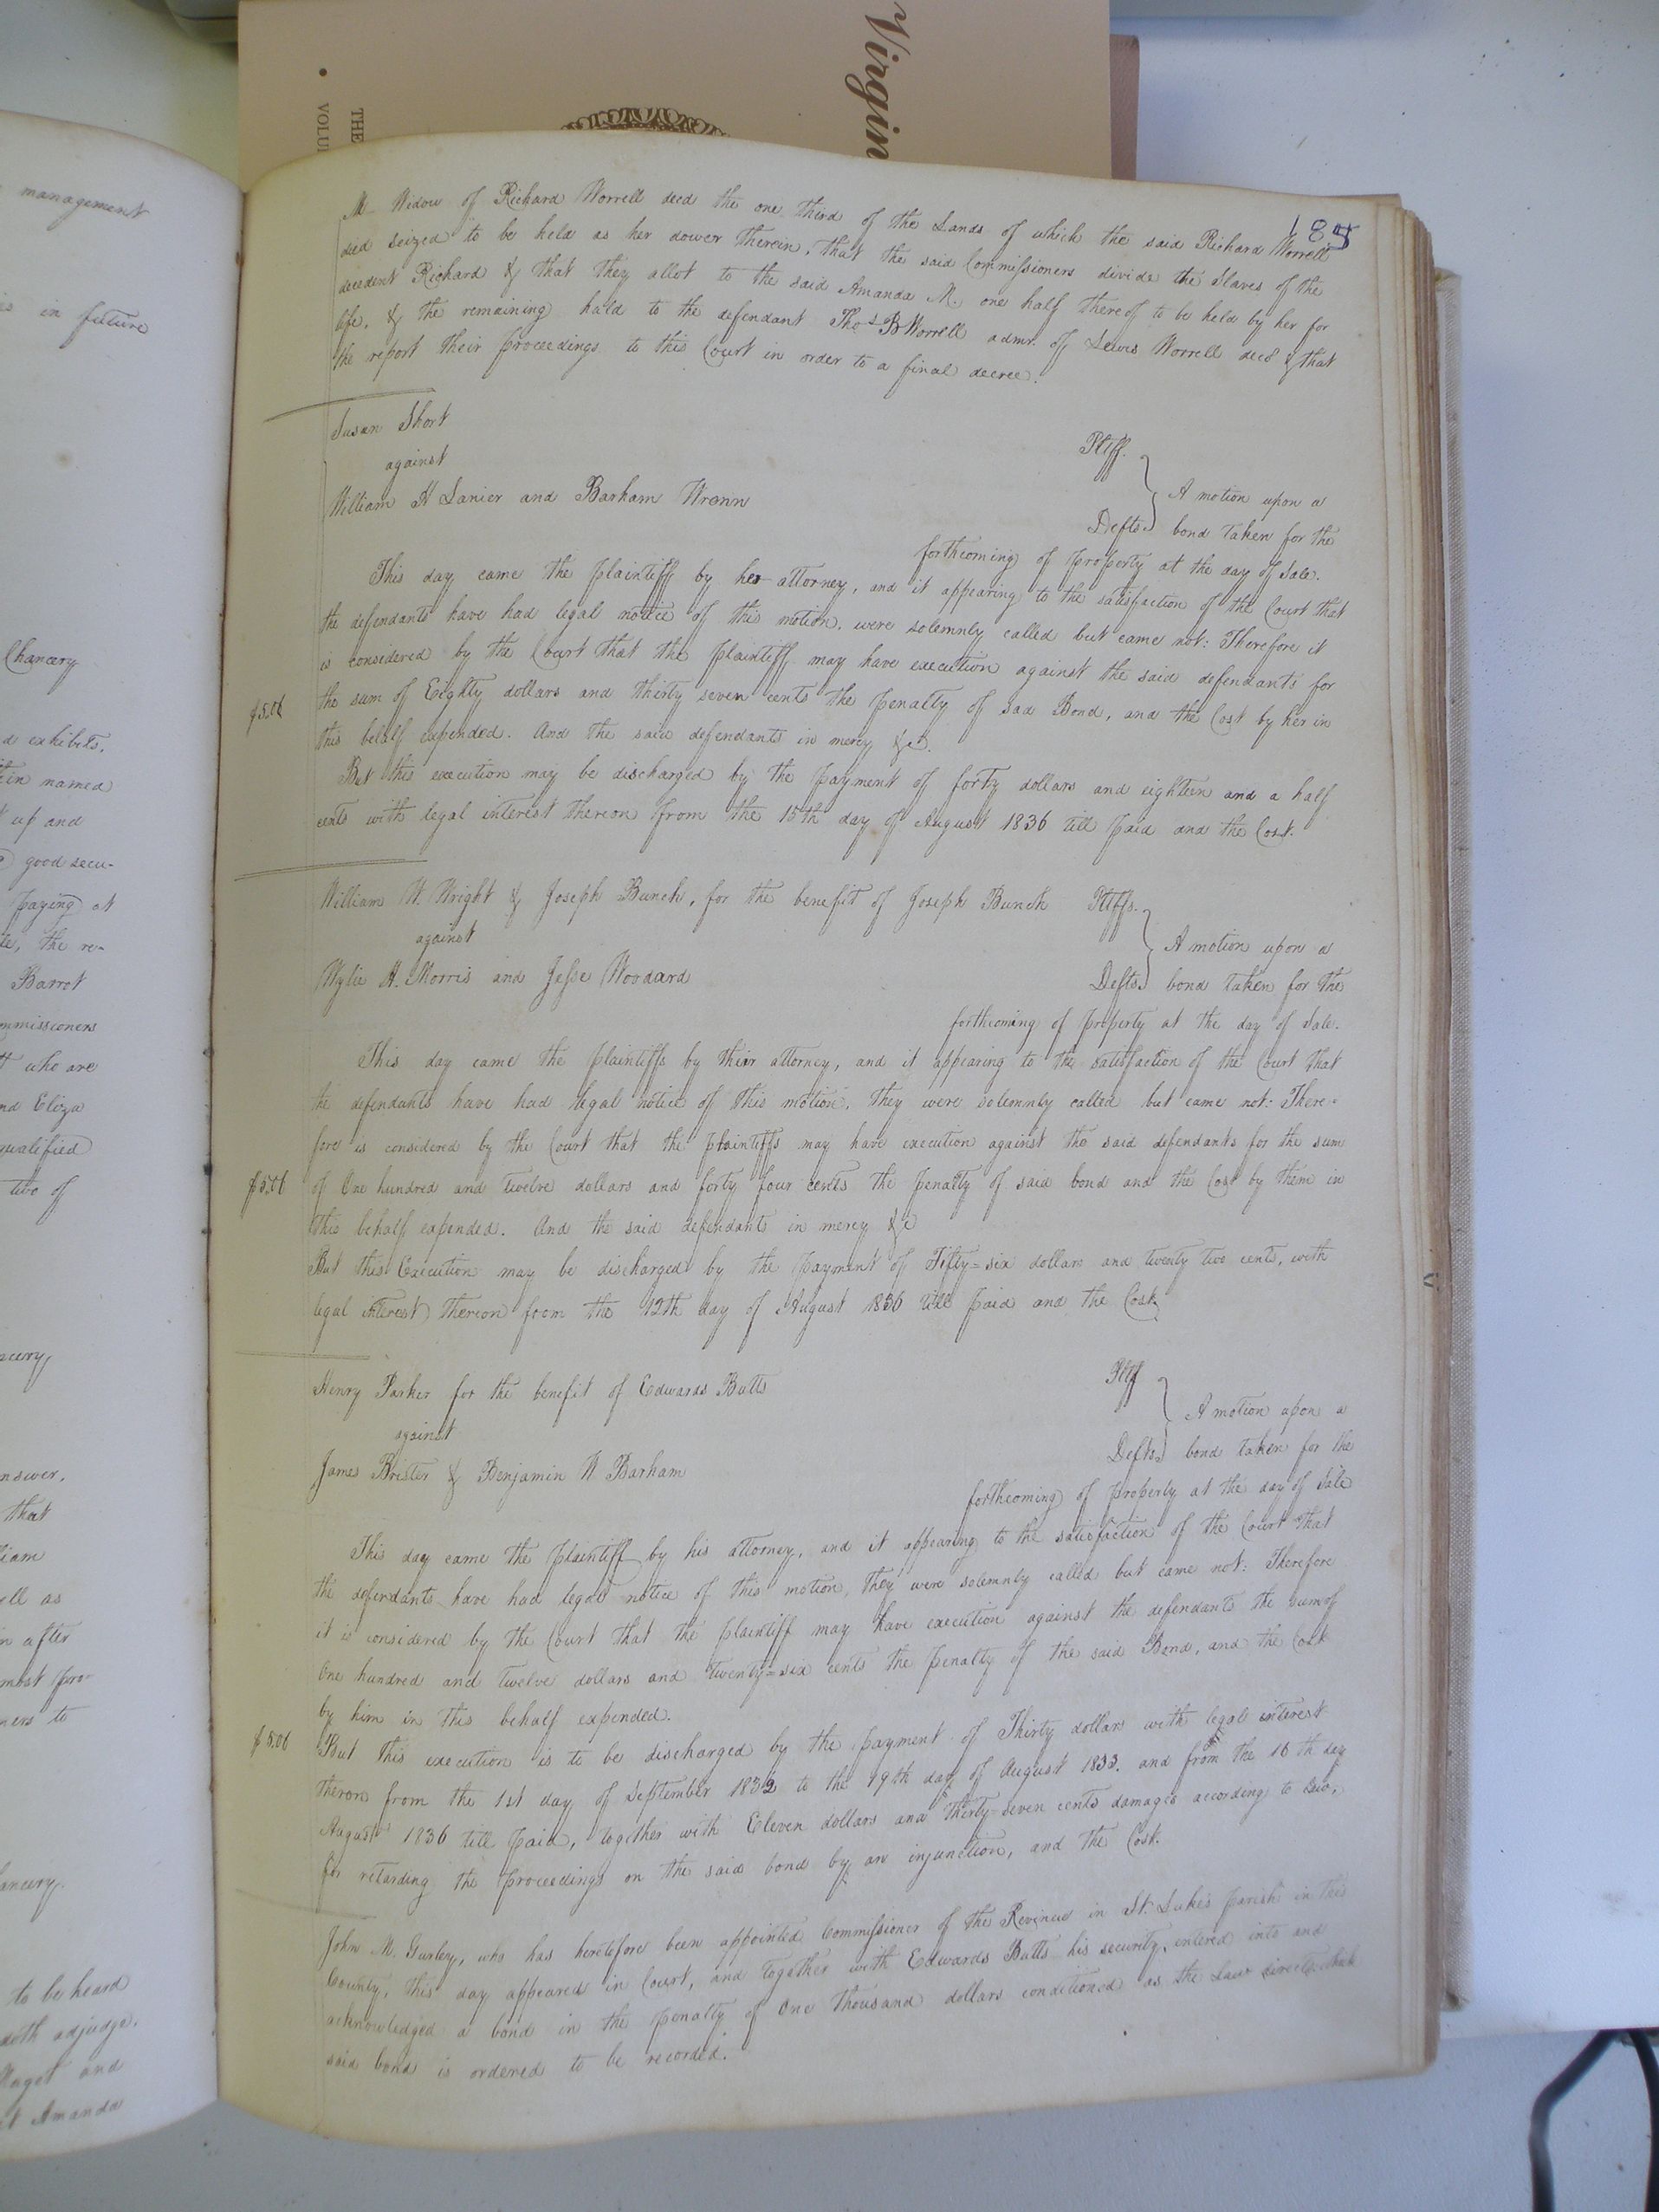 Virgin
THE
VOLU
management
in future
Chancery
d exhibits,
in named
up and
good secu-
paying at
the re-
Barrot
mmissioners
who are
nd Eliza
qualified
two of
nswer,
that
liam
ell as
n after
most pro-
ners to
ancery.
to be heard
doth adjudge,
and
t Amanda
185
M. Widow of Richard Worrell decd the one third of the Lands of which the said Richard Worrell
died seized to be held as her dower therein, that the said Commissioners divide the Slaves of the
decedent Richard & that they allot to the said Amanda M. one half thereof to be held by her for
life, & the remaining hald to the defendant Thos B Worrell admr. of Lewis Worrell decd & that
the report their proceedings to this Court in order to a final decree.
Susan Short Pltff.
against
William H Lanier and Barham Wrenn Defts. A motion upon a
bond taken for the
forthcoming of property at the day of Sale.
This day came the plaintiff by her attorney, and it appearing to the satisfaction of the Court that
the defendants have had legal notice of this motion. were solemnly called but came not: Therefore it
is considered by the Court that the plaintiff may have execution against the said defendants for
$5.06 the sum of Eighty dollars and thirty seven cents the penalty of sad Bond, and the Cost by her in
this behalf expended. And the said defendants in mercy &c.
But this execution may be discharged by the payment of forty dollars and eighteen and a half
cents with legal interest thereon from the 15th day of August 1836 till paid and the Cost.
William W. Wright & Joseph Bunch, for the benefit of Joseph Bunch Pltffs.
against A motion upon a
Wylie H. Morris and Jesse Woodard Defts. bond taken for the
forthcoming of property at the day of Sale.
This day came the plaintiffs by their attorney, and it appearing to the satisfaction of the Court that
the defendants have had legal notice of this motion, they were solemnly called but came not: There-
fore is considered by the Court that the plaintiffs may have execution against the said defendants for the sum
$5.06 of One hundred and twelve dollars and forty four cents the penalty of said bond and the Cost by them in
this behalf expended. And the said defendants in mercy &c
But this Execution may be discharged by the payment of Fifty=six dollars and twenty two cents, with
legal interest thereon from the 12th day of August 1836 till paid and the Cost.
Henry Parker for the benefit of Edwards Butts Pltff
against A motion upon a
James Brister & Benjamin W Barham Defts. bond taken for the
forthcoming of property at the day of Sale
This day came the plaintiff by his attorney, and it appearing to the satisfaction of the Court that
the defendants have had legal notice of this motion, they were solemnly called but came not: Therefore
it is considered by the Court that the plaintiff may have execution against the defendants the sum of
One hundred and twelve dollars and twenty=six cents the penalty of the said Bond, and the Cost
by him in this behalf expended.
$5.06 But this execution is to be discharged by the payment of Thirty dollars with legal interest
theron from the 1st day of September 1832 to the 19th day of August 1833. and from the 16th day
August 1836 till paid, together with Eleven dollars and thirty=seven cents damages according to Law,
for retarding the proceedings on the said bond by an injunction, and the Cost.
John M. Gurley, who has heretofore been appointed Commissioner of the Revenue in St. Luke's parish in this
County, this day appeared in Court, and together with Edwards Butts his security, entered into and
acknowledged a bond in the penalty of One thousand dollars conditioned as the Law directs which
said bond is ordered to be recorded.